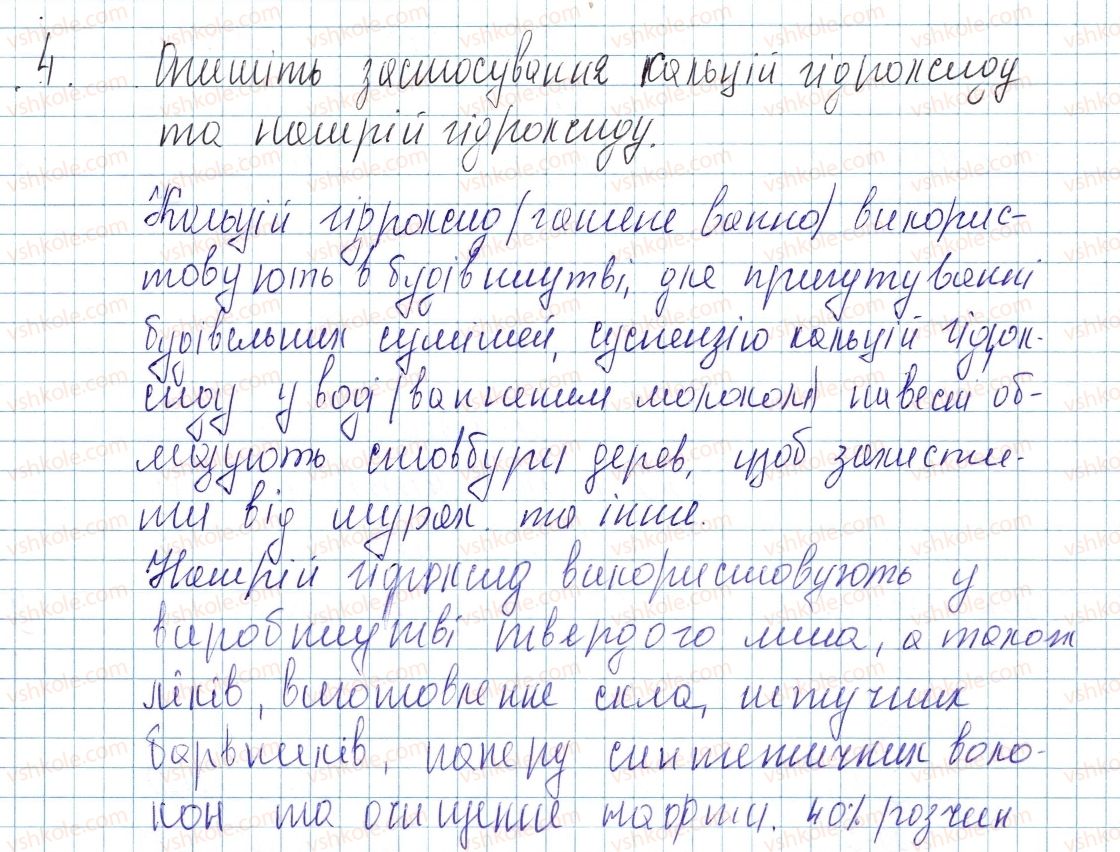 4. Опишіть застосування кальцій гідроксиду
та натрій гідроксиду.
Кальцій гідроксид (гашене вапно) викорис-
товують в будівництві, для пригутуванні
будівельних сумішей, суспензією кальцій гідрок-
сиду у воді (вапняним молоком) навесні об-
мазують стовбури дерев, щоб захисти-
ти від мурах та інше.
Натрій гідроксид використовують у
виробництві твердого мила, а також
ліків, виготовлення скла, штучних
барвників, паперу синтетичних воло-
кон та очищення нафти. 40% розчин